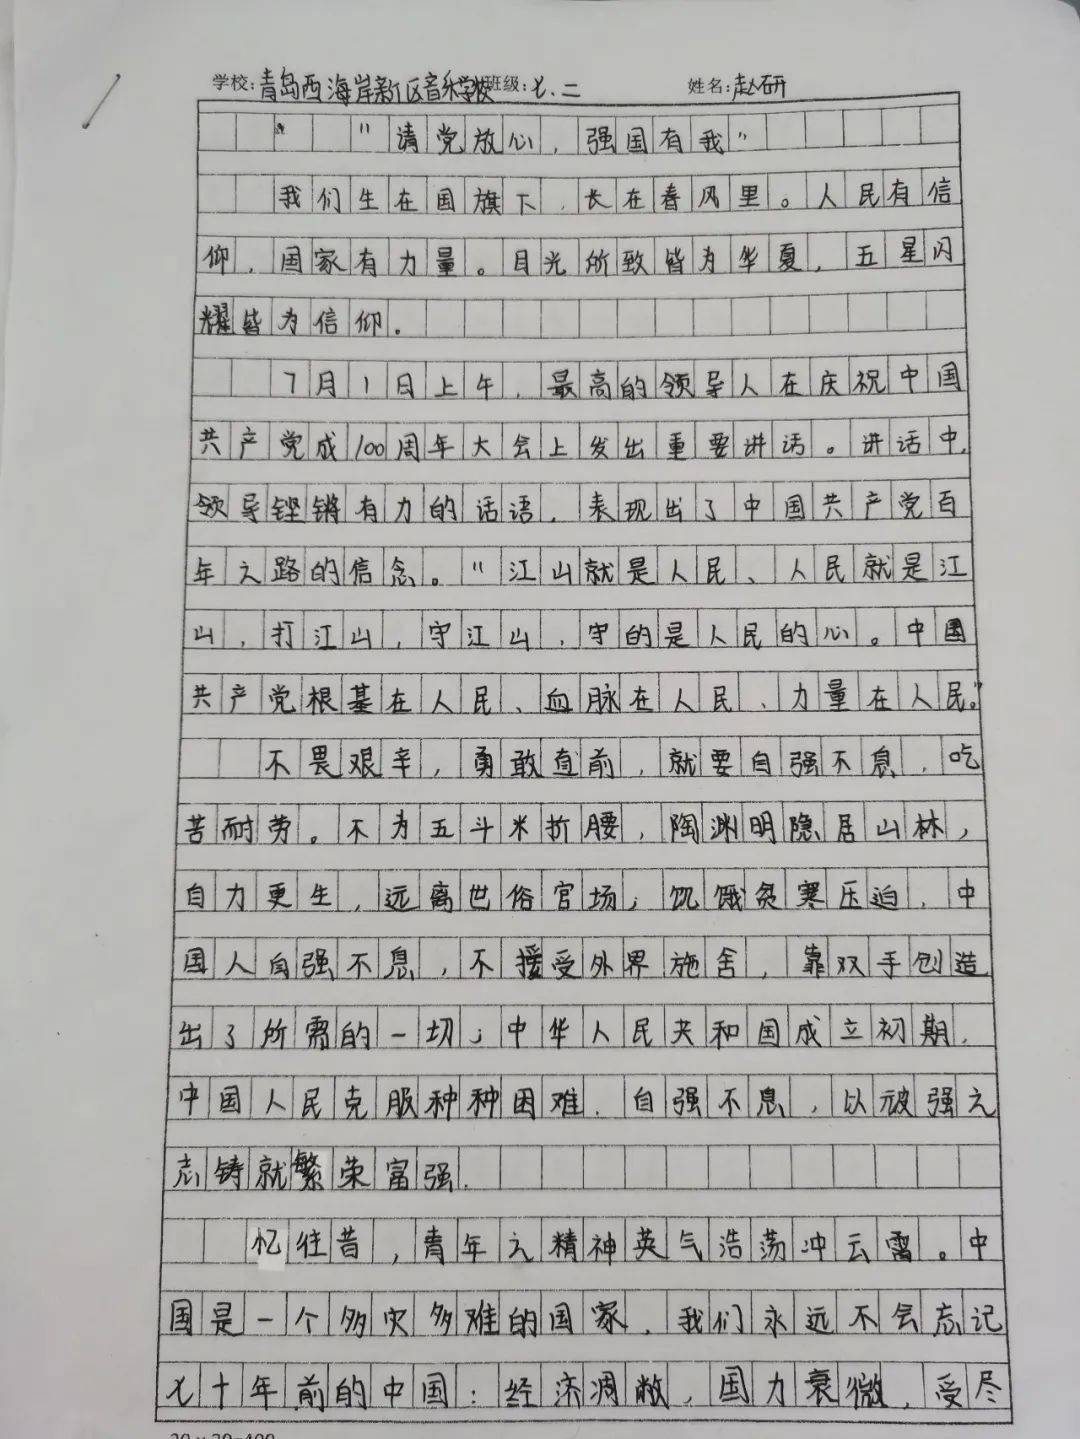 学校：青岛西海岸新区音乐学校班级：七、二 姓名：赵研
"请党放心，强国有我"
我们生在国旗下，长在春风里。人民有信
仰，国家有力量。目光所致皆为华夏，五星闪
耀皆为信仰．
7月1日上午，最高的领导人在庆祝中国
共产党成100周年大会上发出重要讲话。讲话中，
领导铿锵有力的话语，表现出了中国共产党百
年之路的信念。"江山就是人民、人民就是江
山，打江山，守江山，守的是人民的心。中国
共产党根基在人民、血脉在人民、力量在人民。"
不畏艰辛，勇敢直前，就要自强不息，吃
苦耐劳。不为五斗米折腰，陶渊明隐居山林，
自力更生，远离世俗官场；饥饿贫寒压迫，中
国人自强不息，不接受外界施舍，靠双手创造
出了所需的一切；中华人民共和国成立初期，
中国人民克服种种困难．自强不息，以顽强之
志铸就繁荣富强．
忆往昔，青年之精神英气浩荡冲云霄。中
国是一个多灾多难的国家，我们永远不会忘记
七十年前的中国：经济凋敝，国力衰微，受尽
20×20=400